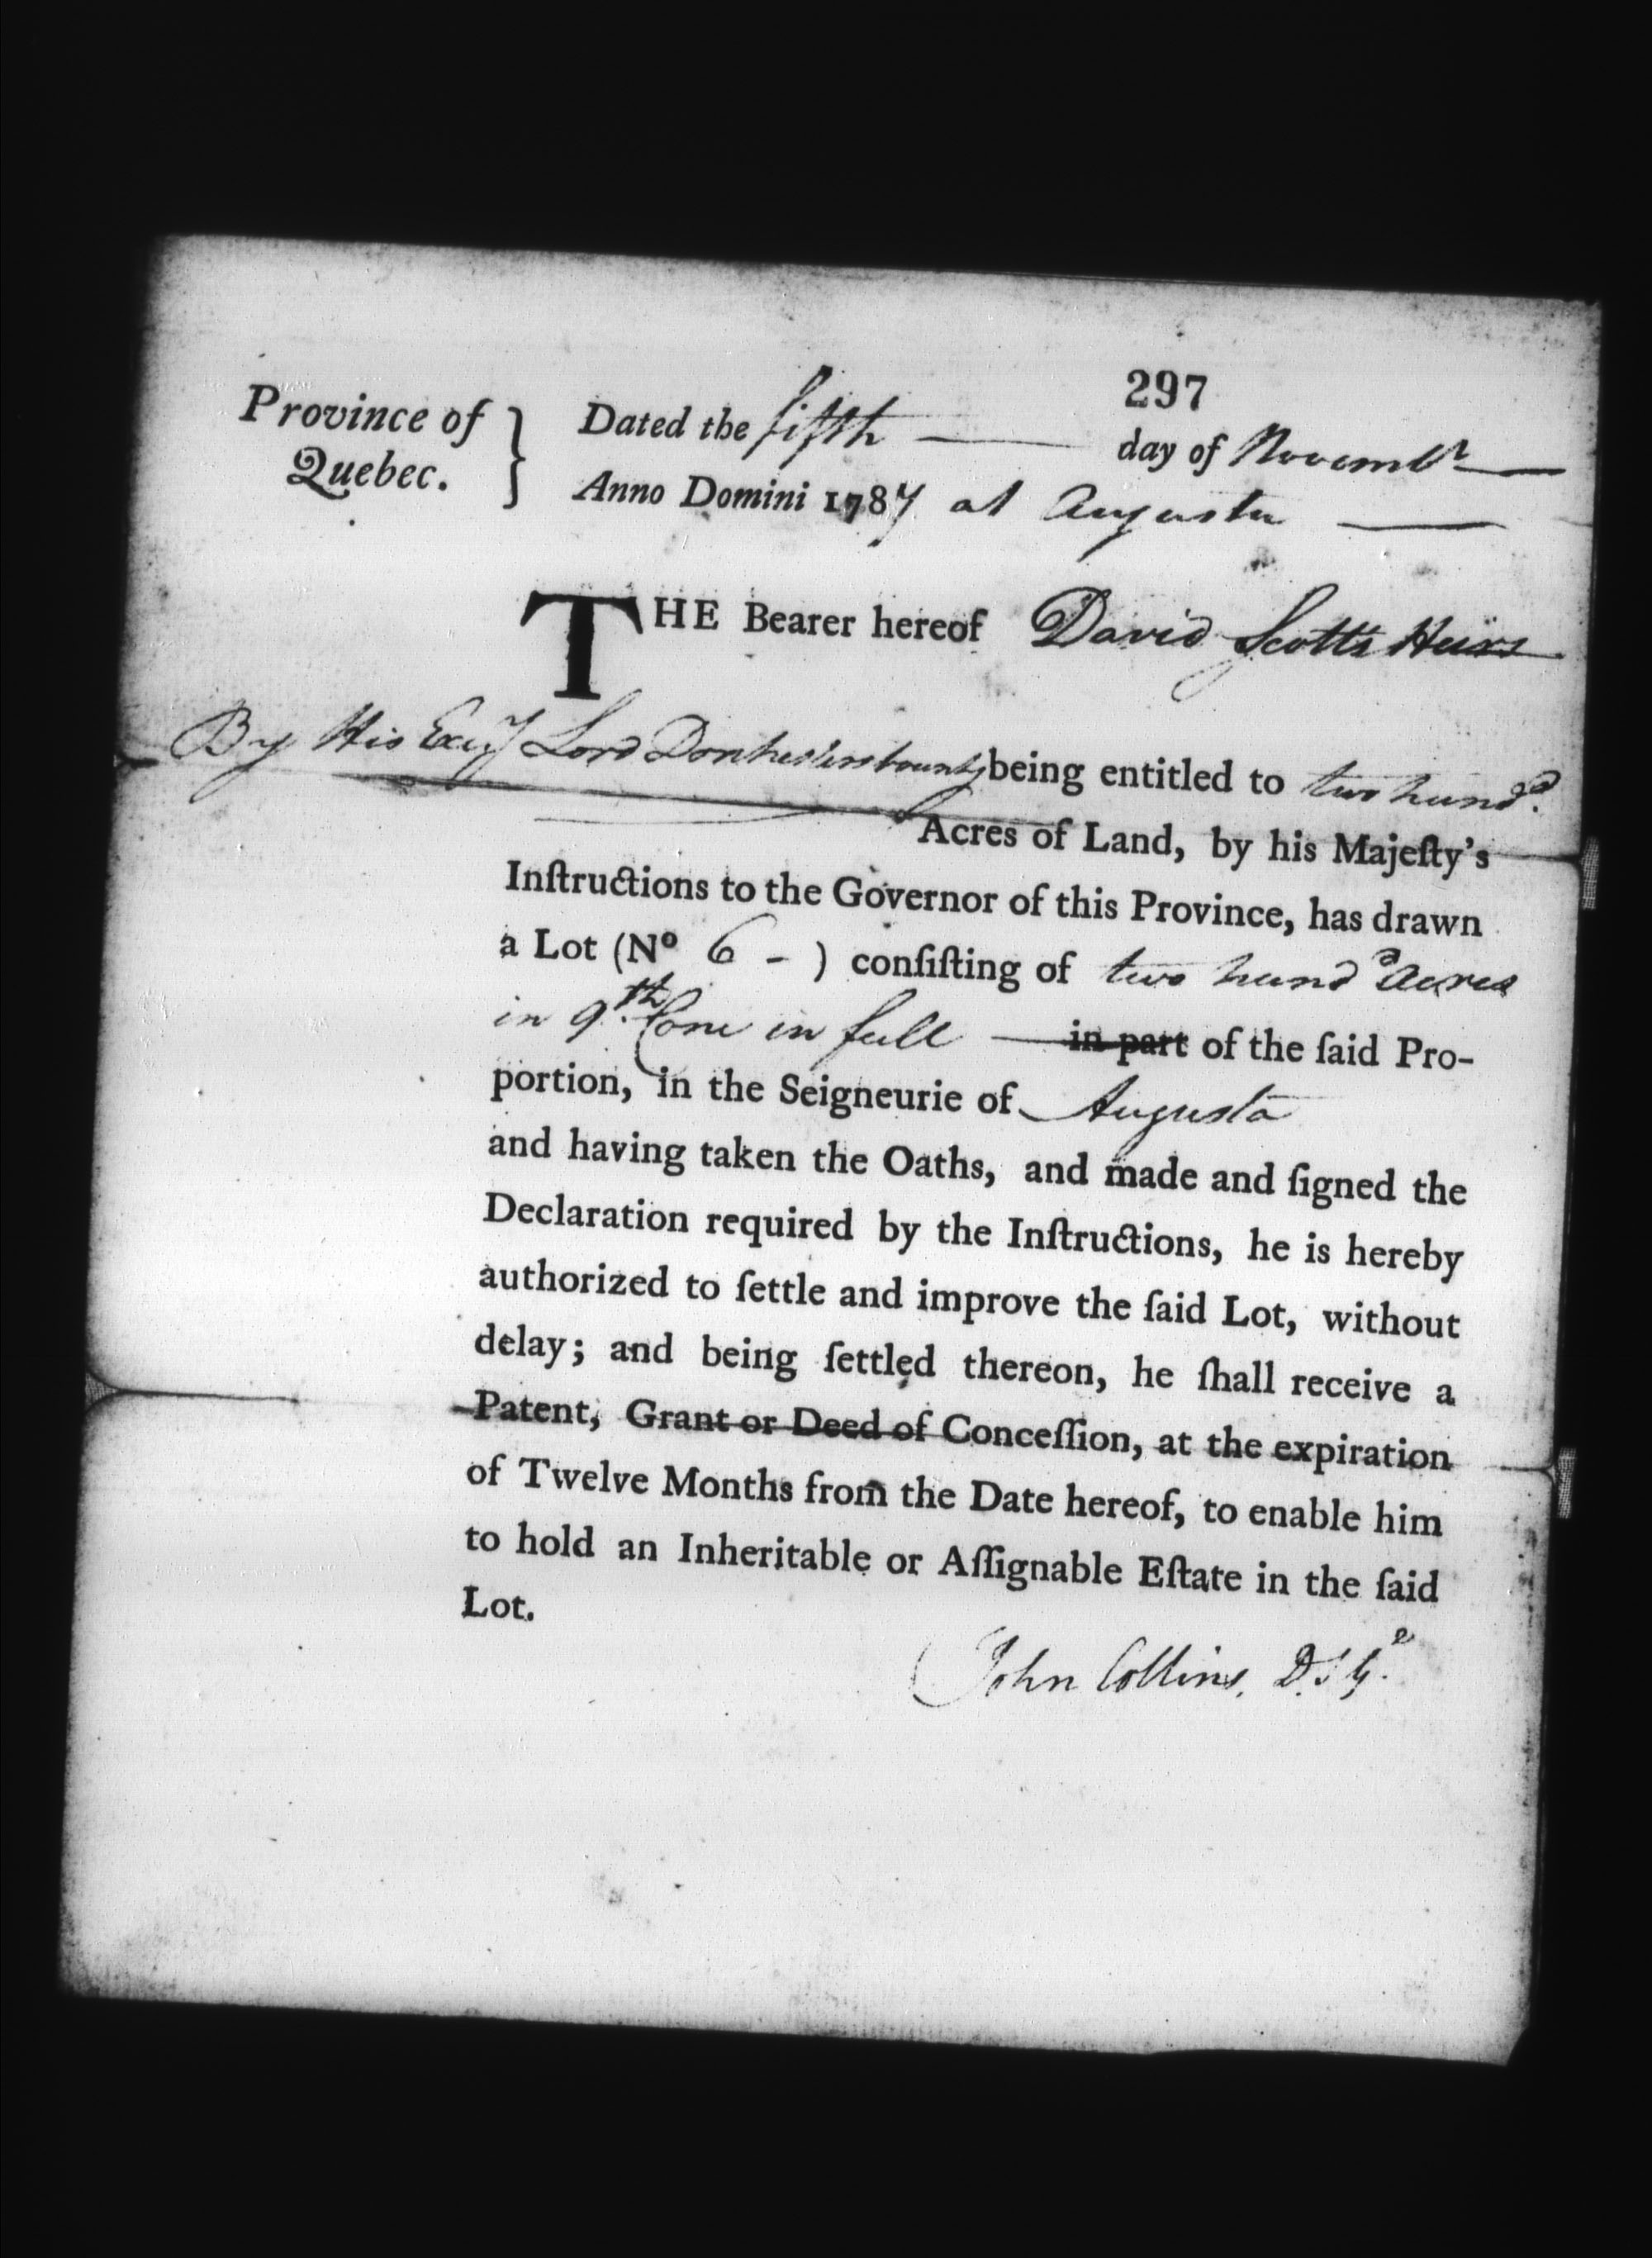 297
Province of } Dated the fifth — day of Novembr —
Quebec. } Anno Domini 1787 at Augusta —
THE Bearer hereof David Scotts Heirs
By His Excy Lord Dorchesters bounty being entitled to two hund.d
Acres of Land, by his Majeſty's
Inſtructions to the Governor of this Province, has drawn
a Lot (No 6 - ) conſiſting of two hund.d Acres
in 9.th Con in full — in part of the ſaid Pro-
portion, in the Seigneurie of Augusta
and having taken the Oaths, and made and ſigned the
Declaration required by the Inſtructions, he is hereby
authorized to ſettle and improve the ſaid Lot, without
delay; and being ſettled thereon, he ſhall receive a
Patent, Grant or Deed of Conceſſion, at the expiration
of Twelve Months from the Date hereof, to enable him
to hold an Inheritable or Aſſignable Eſtate in the ſaid
Lot.
John Collins, D.S.G.